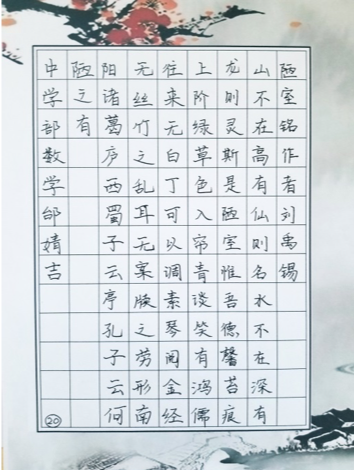 陋室铭作者刘禹锡
山不在高有仙则名水不在深有
龙则灵斯是陋室惟吾德馨苔痕
上阶绿草色入帘青谈笑有鸿儒
往来无白丁可以调素琴阅金经
无丝竹之乱耳无案牍之劳形南
阳诸葛庐西蜀子云亭孔子云何
陋之有
中学部数学邰婧吉
20